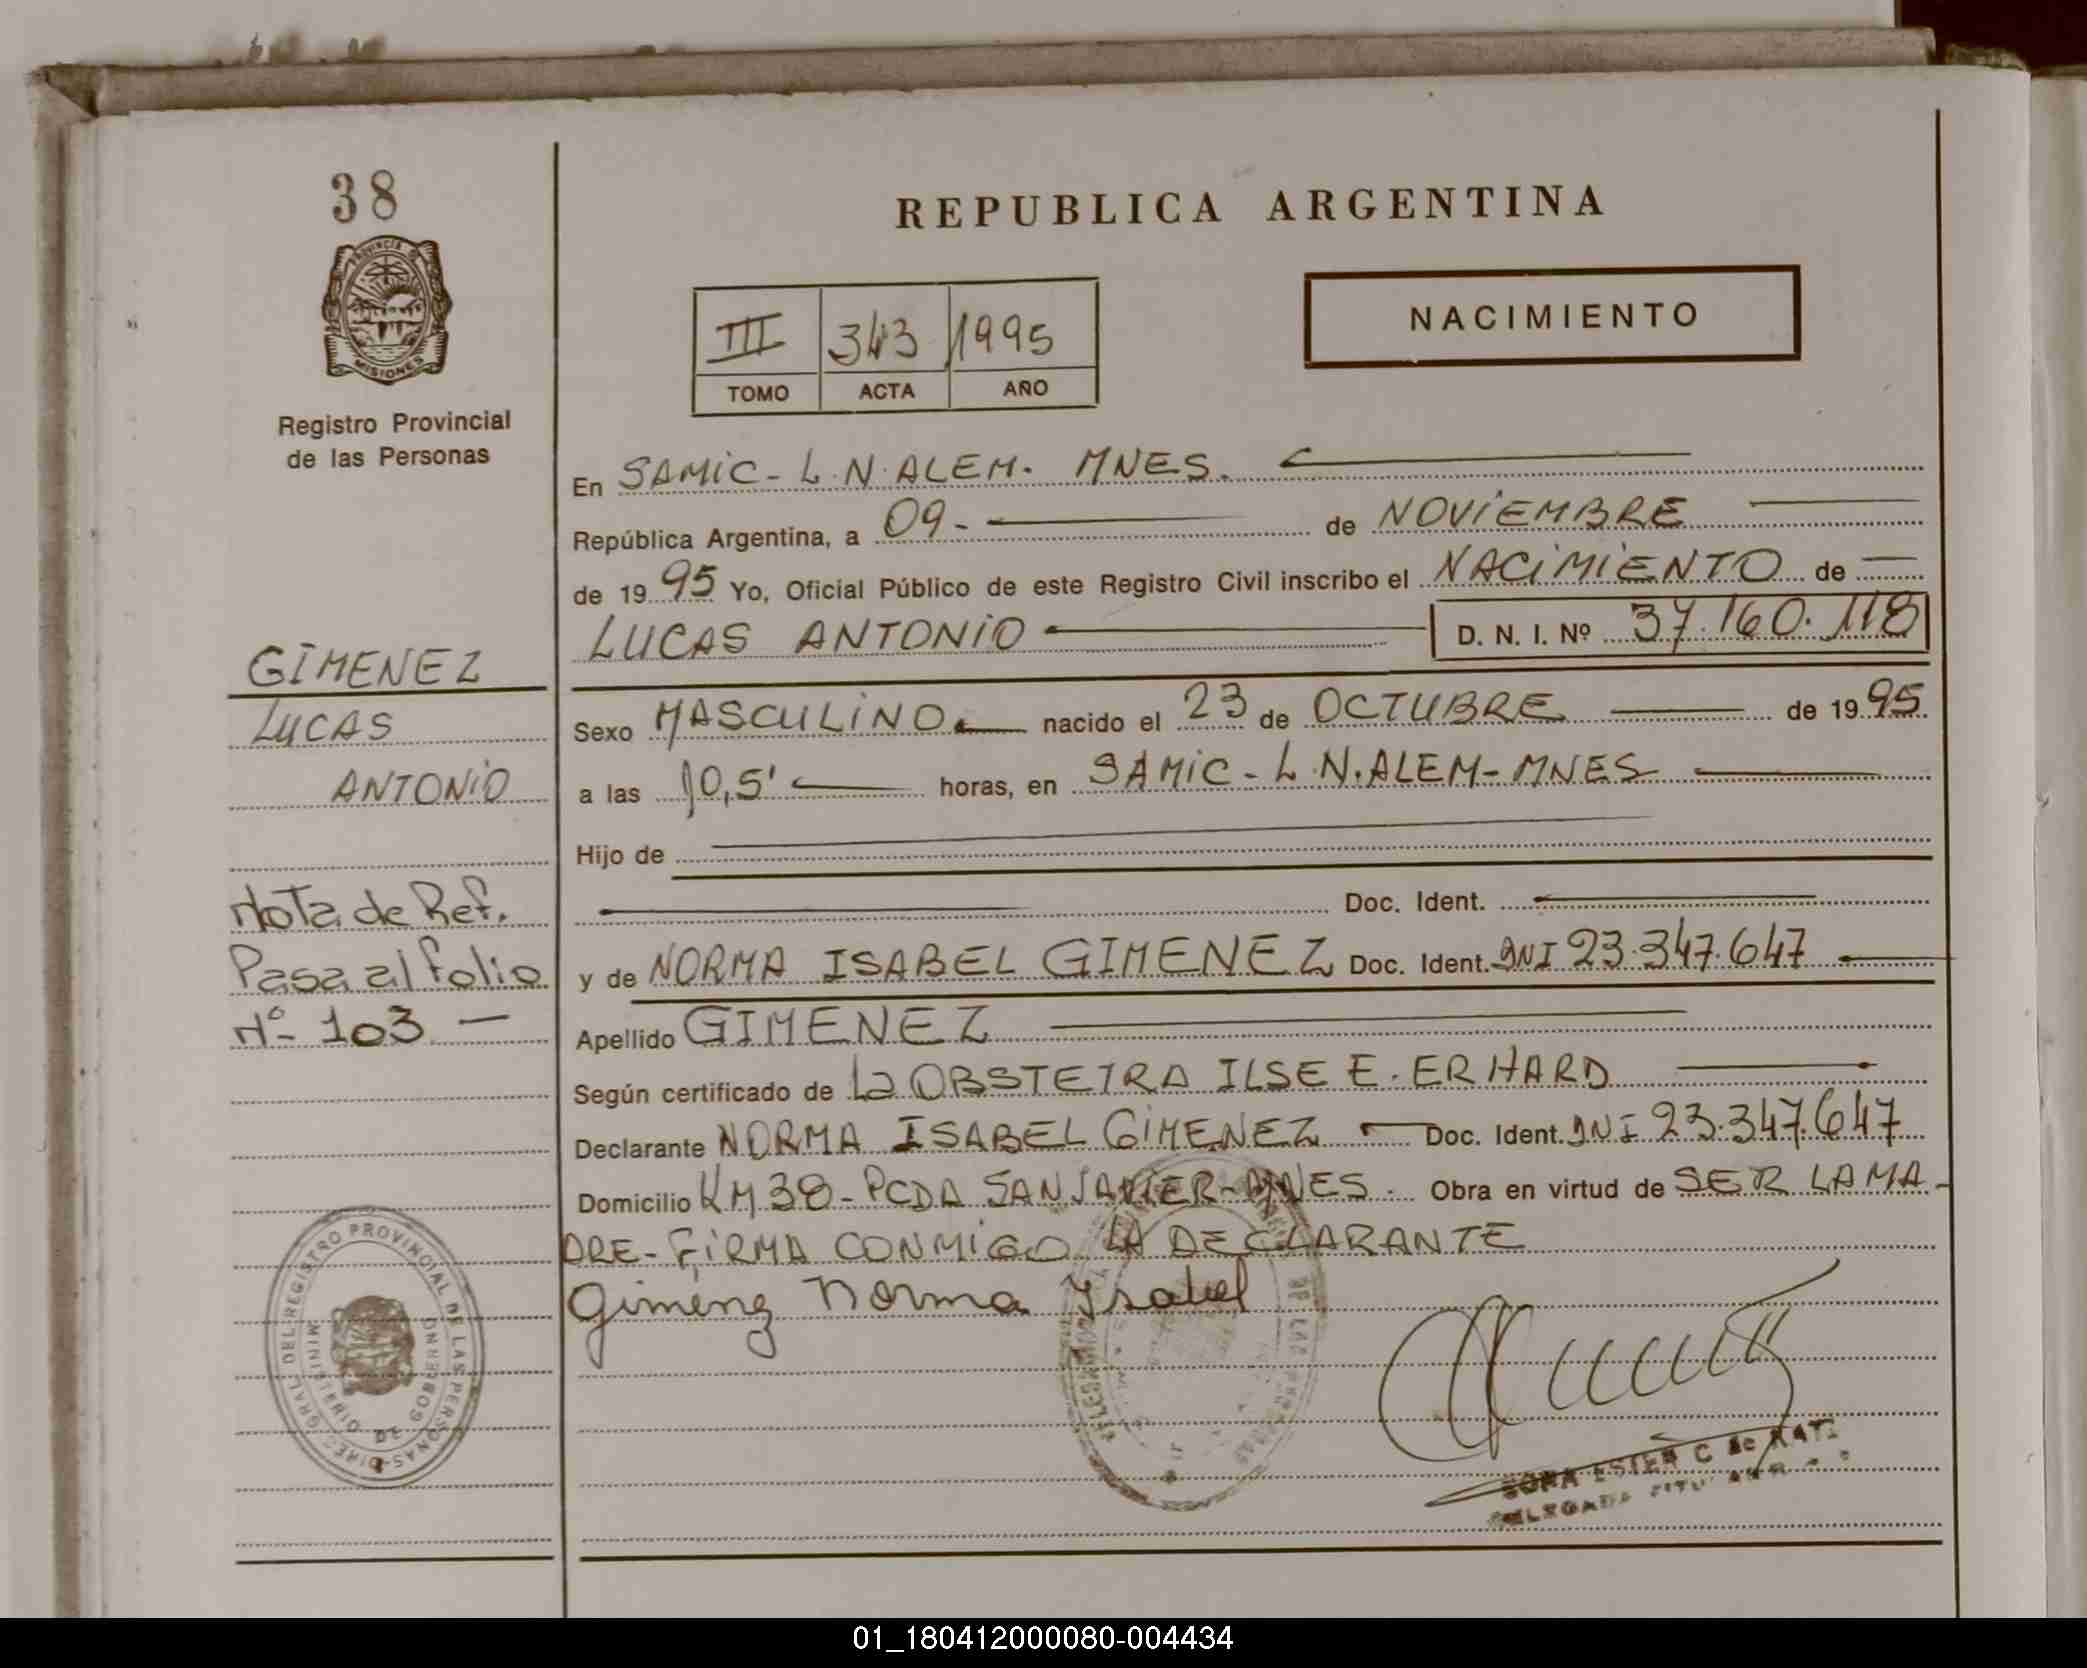 38
PROVINCIA DE
MISIONES
Registro Provincial
de las Personas
REPUBLICA ARGENTINA
III 343 1995
TOMO ACTA AÑO
NACIMIENTO
En SAMIC - L.N. ALEM. MNES.
República Argentina, a 09 - de NOVIEMBRE
de 1995 Yo, Oficial Público de este Registro Civil inscribo el NACIMIENTO de
LUCAS ANTONIO D. N. I. Nº 37.160.118
GIMENEZ
LUCAS
ANTONIO
Nota de Ref.
Pasa al folio
Nº 103 -
Sexo MASCULINO nacido el 23 de OCTUBRE de 1995
a las 10,5' horas, en SAMIC - L.N. ALEM - MNES
Hijo de
Doc. Ident.
y de NORMA ISABEL GIMENEZ Doc. Ident. DNI 23.347.647
Apellido GIMENEZ
Según certificado de la OBSTETRA ILSE E. ERHARD
Declarante NORMA ISABEL GIMENEZ Doc. Ident. DNI 23.347.647
Domicilio KM 38 - PCDA SAN JAVIER - MNES. Obra en virtud de SER LA MA-
DRE - FIRMA CONMIGO LA DECLARANTE
Gimenez Norma Ysabel
DEL REGISTRO PROVINCIAL DE LAS PERSONAS - DIREC. GRAL.
MINISTERIO DE GOBIERNO
ESTER C de
01_180412000080-004434